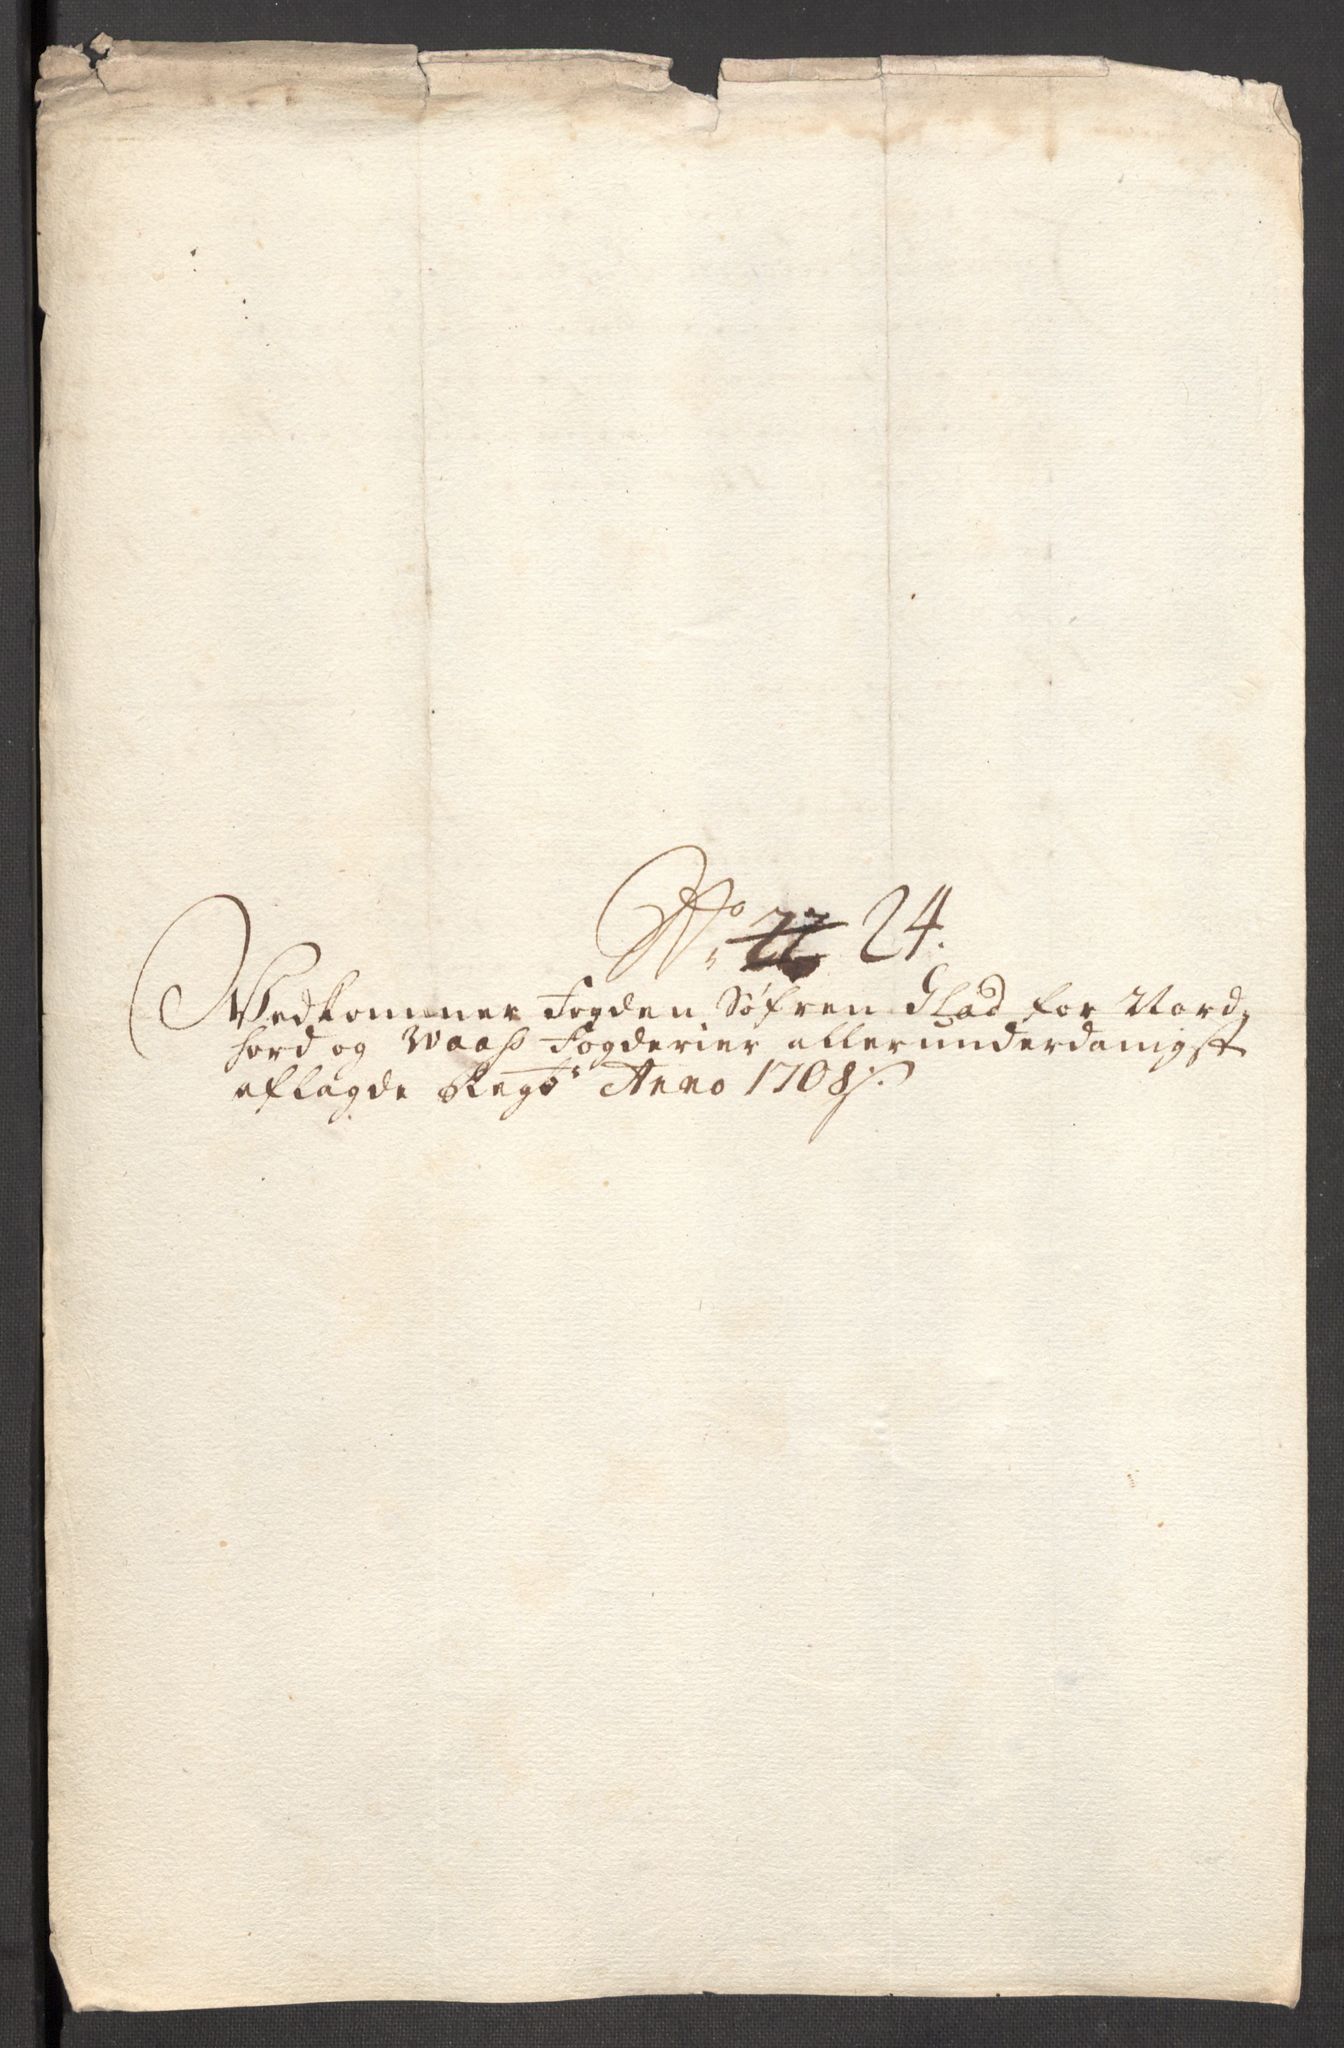 No. 22 24.
Vedkommer Fogden Søfren Glad for Nord,
hord og Waaß Fogderier allerunderdanigst
aflagde Regs: Anno 1708/: